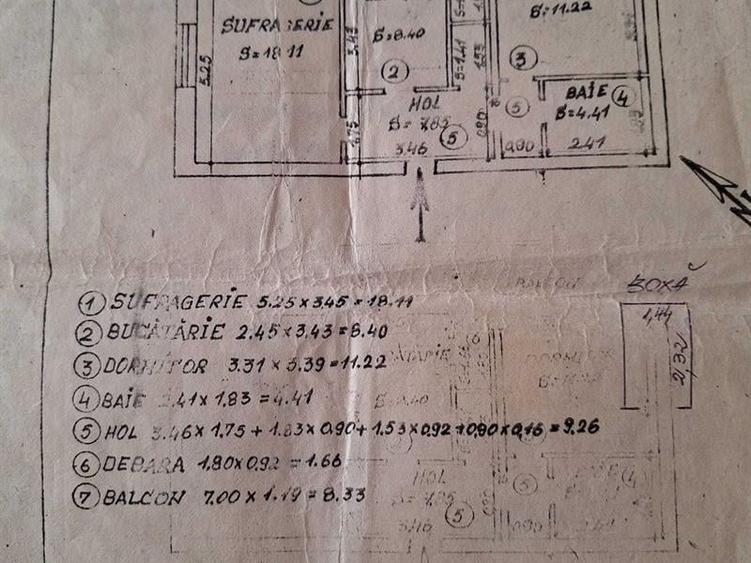 SUFRAGERIE
S=18.11
5.25
3.43
S=8.40
2
S=1.41
1.53
S=11.22
3
HOL
S=7.85
5
3.46
1.75
0.90
5
0.90
BAIE
S=4.41
4
2.41
BOXĂ
1,44
2,32
1 SUFRAGERIE 5.25 x 3.45 = 18.11
2 BUCĂTĂRIE 2.45 x 3.43 = 8.40
3 DORMITOR 3.31 x 3.39 = 11.22
4 BAIE 2.41 x 1.83 = 4.41
5 HOL 3.46 x 1.75 + 1.83 x 0.90 + 1.53 x 0.92 + 0.90 x 0.16 = 9.26
6 DEBARA 1.80 x 0.92 = 1.66
7 BALCON 7.00 x 1.19 = 8.33